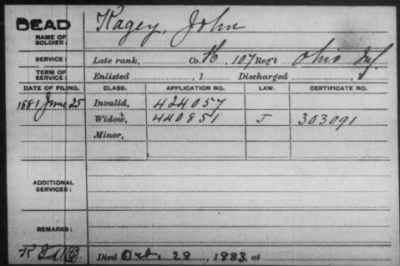 DEAD
NAME OF SOLDIER: Kagey, John
SERVICE: Late rank, Co. H, 107 Reg't Ohio Inf.
TERM OF SERVICE: Enlisted , 1 Discharged , 1
DATE OF FILING. CLASS. APPLICATION NO. LAW. CERTIFICATE NO.
1881 June 25 Invalid, 424057
Widow, 440851 J 303091
Minor,
ADDITIONAL SERVICES:
REMARKS:
Died Oct. 28, 1883, at